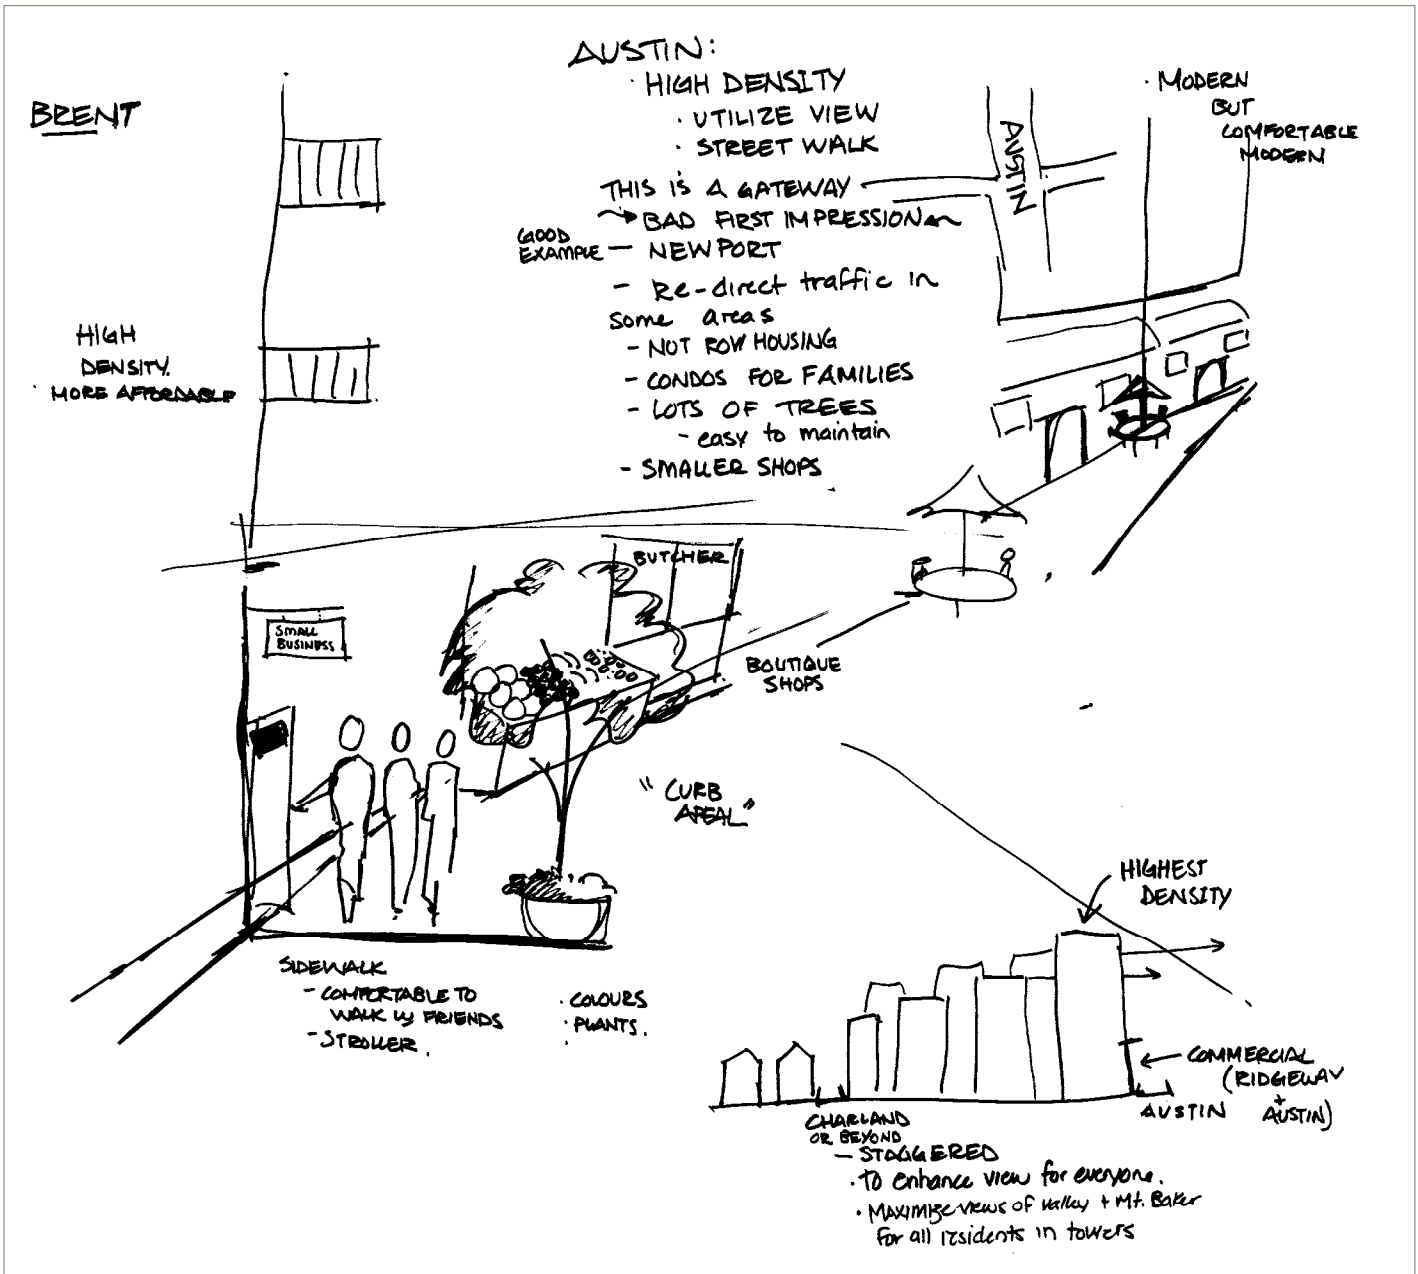 BRENT
HIGH
DENSITY.
· MORE AFFORDABLE
AUSTIN:
· HIGH DENSITY
· UTILIZE VIEW
· STREET WALK
THIS IS A GATEWAY
BAD FIRST IMPRESSION
GOOD
EXAMPLE
— NEWPORT
- Re-direct traffic in
some areas
- NOT ROW HOUSING
- CONDOS FOR FAMILIES
- LOTS OF TREES
- easy to maintain
- SMALLER SHOPS
AUSTIN
· MODERN
BUT
COMFORTABLE
MODERN
BUTCHER
SMALL
BUSINESS
BOUTIQUE
SHOPS
"CURB
APEAL"
SIDEWALK
- COMFORTABLE TO
WALK w/ FRIENDS
- STROLLER.
· COLOURS
· PLANTS.
HIGHEST
DENSITY
COMMERCIAL
(RIDGEWAY
+
AUSTIN)
AUSTIN
CHARLAND
OR BEYOND
— STAGGERED
· To enhance view for everyone.
· MAXIMIZE VIEWS OF valley + Mt. Baker
For all residents in towers